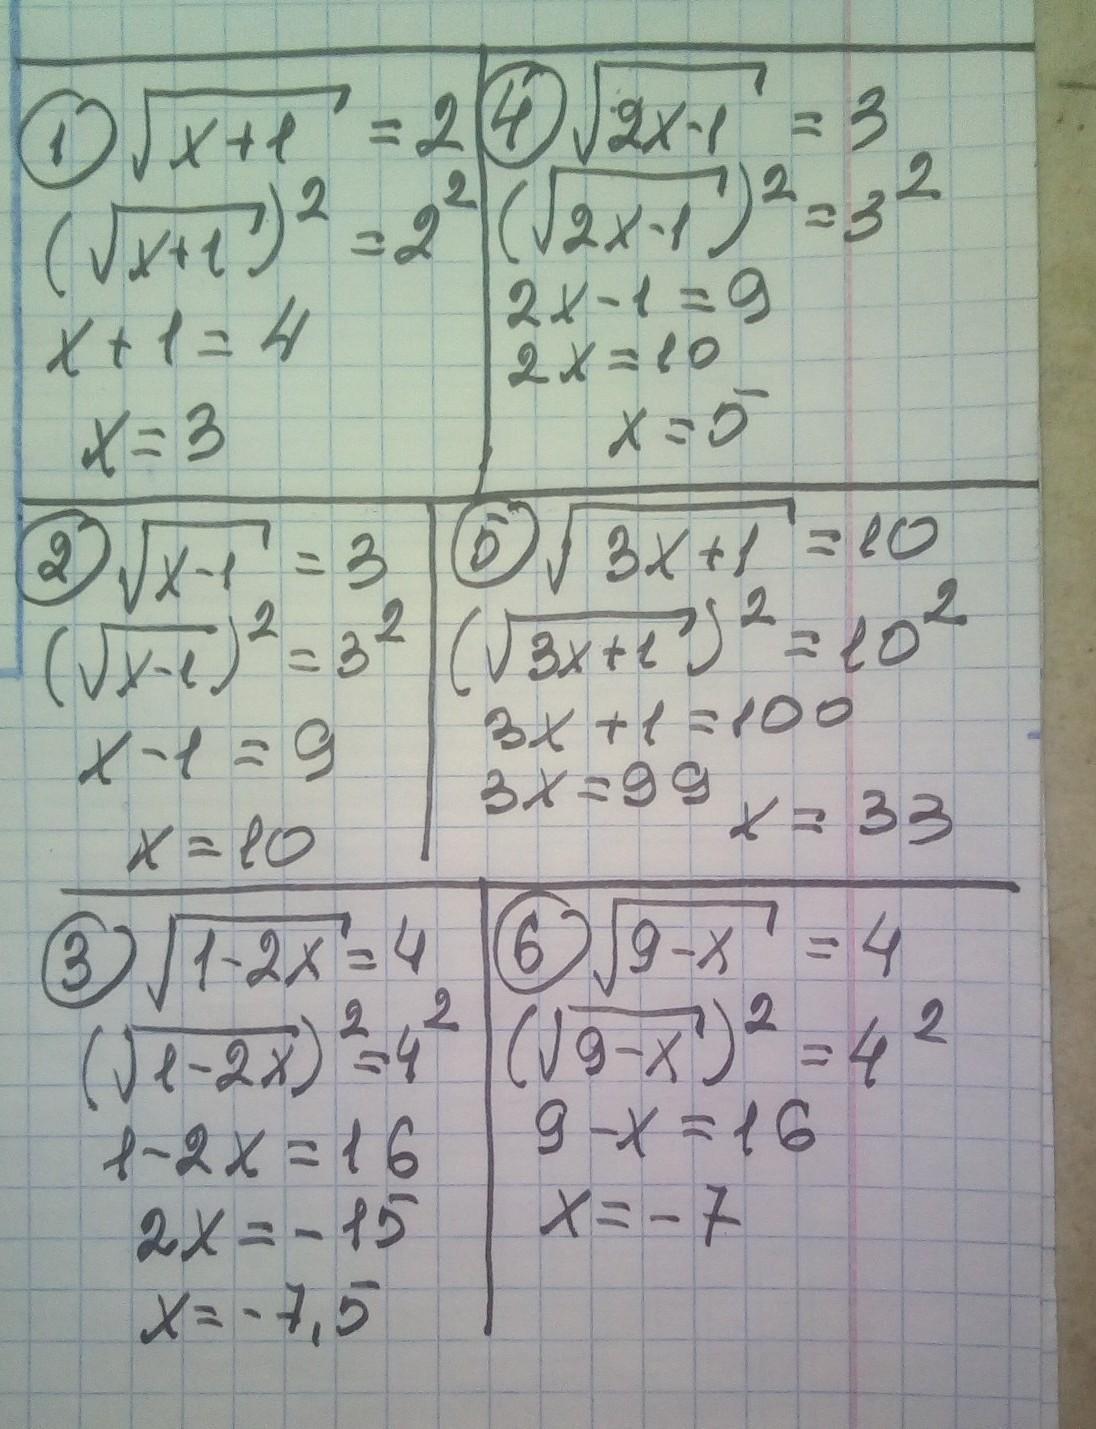 ① √(x+1) = 2
(√(x+1))² = 2²
x + 1 = 4
x = 3
④ √(2x-1) = 3
(√(2x-1))² = 3²
2x - 1 = 9
2x = 10
x = 5
② √(x-1) = 3
(√(x-1))² = 3²
x - 1 = 9
x = 10
⑤ √(3x+1) = 10
(√(3x+1))² = 10²
3x + 1 = 100
3x = 99
x = 33
③ √(1-2x) = 4
(√(1-2x))² = 4²
1 - 2x = 16
2x = -15
x = -7,5
⑥ √(9-x) = 4
(√(9-x))² = 4²
9 - x = 16
x = -7